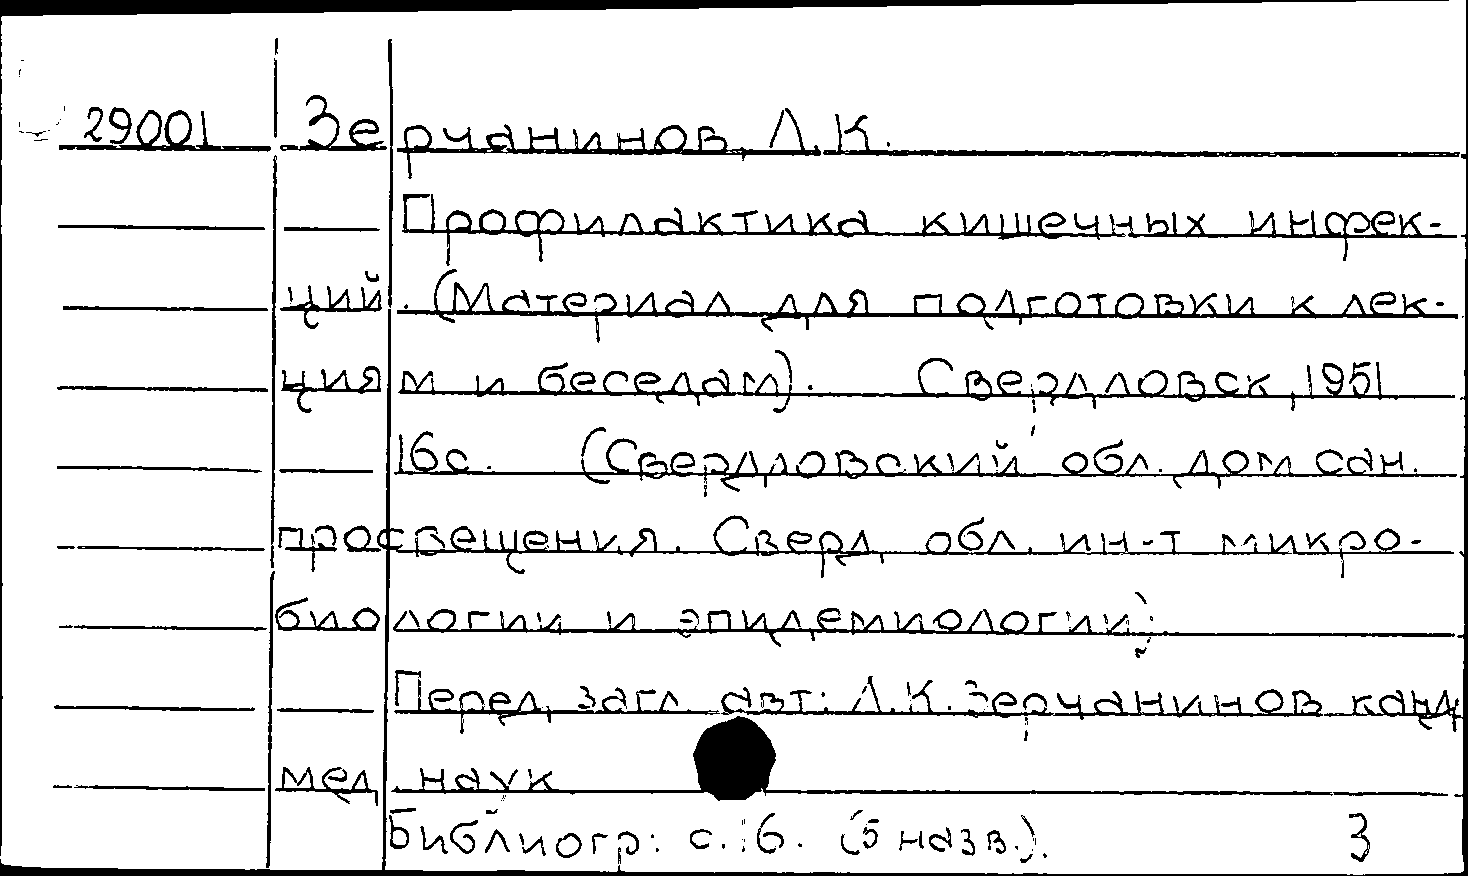 29001 Зерчанинов, Л.К.
Профилактика кишечных инфек-
ций. (Материал для подготовки к лек-
циям и беседам). Свердловск, 1951
16с. (Свердловский обл. дом сан.
просвещения. Сверд. обл. ин-т микро-
биологии и эпидемиологии);
Перед загл. авт: Л.К. Зерчанинов канд
мед. наук
Библиогр: с. 16. (5 назв.). 3